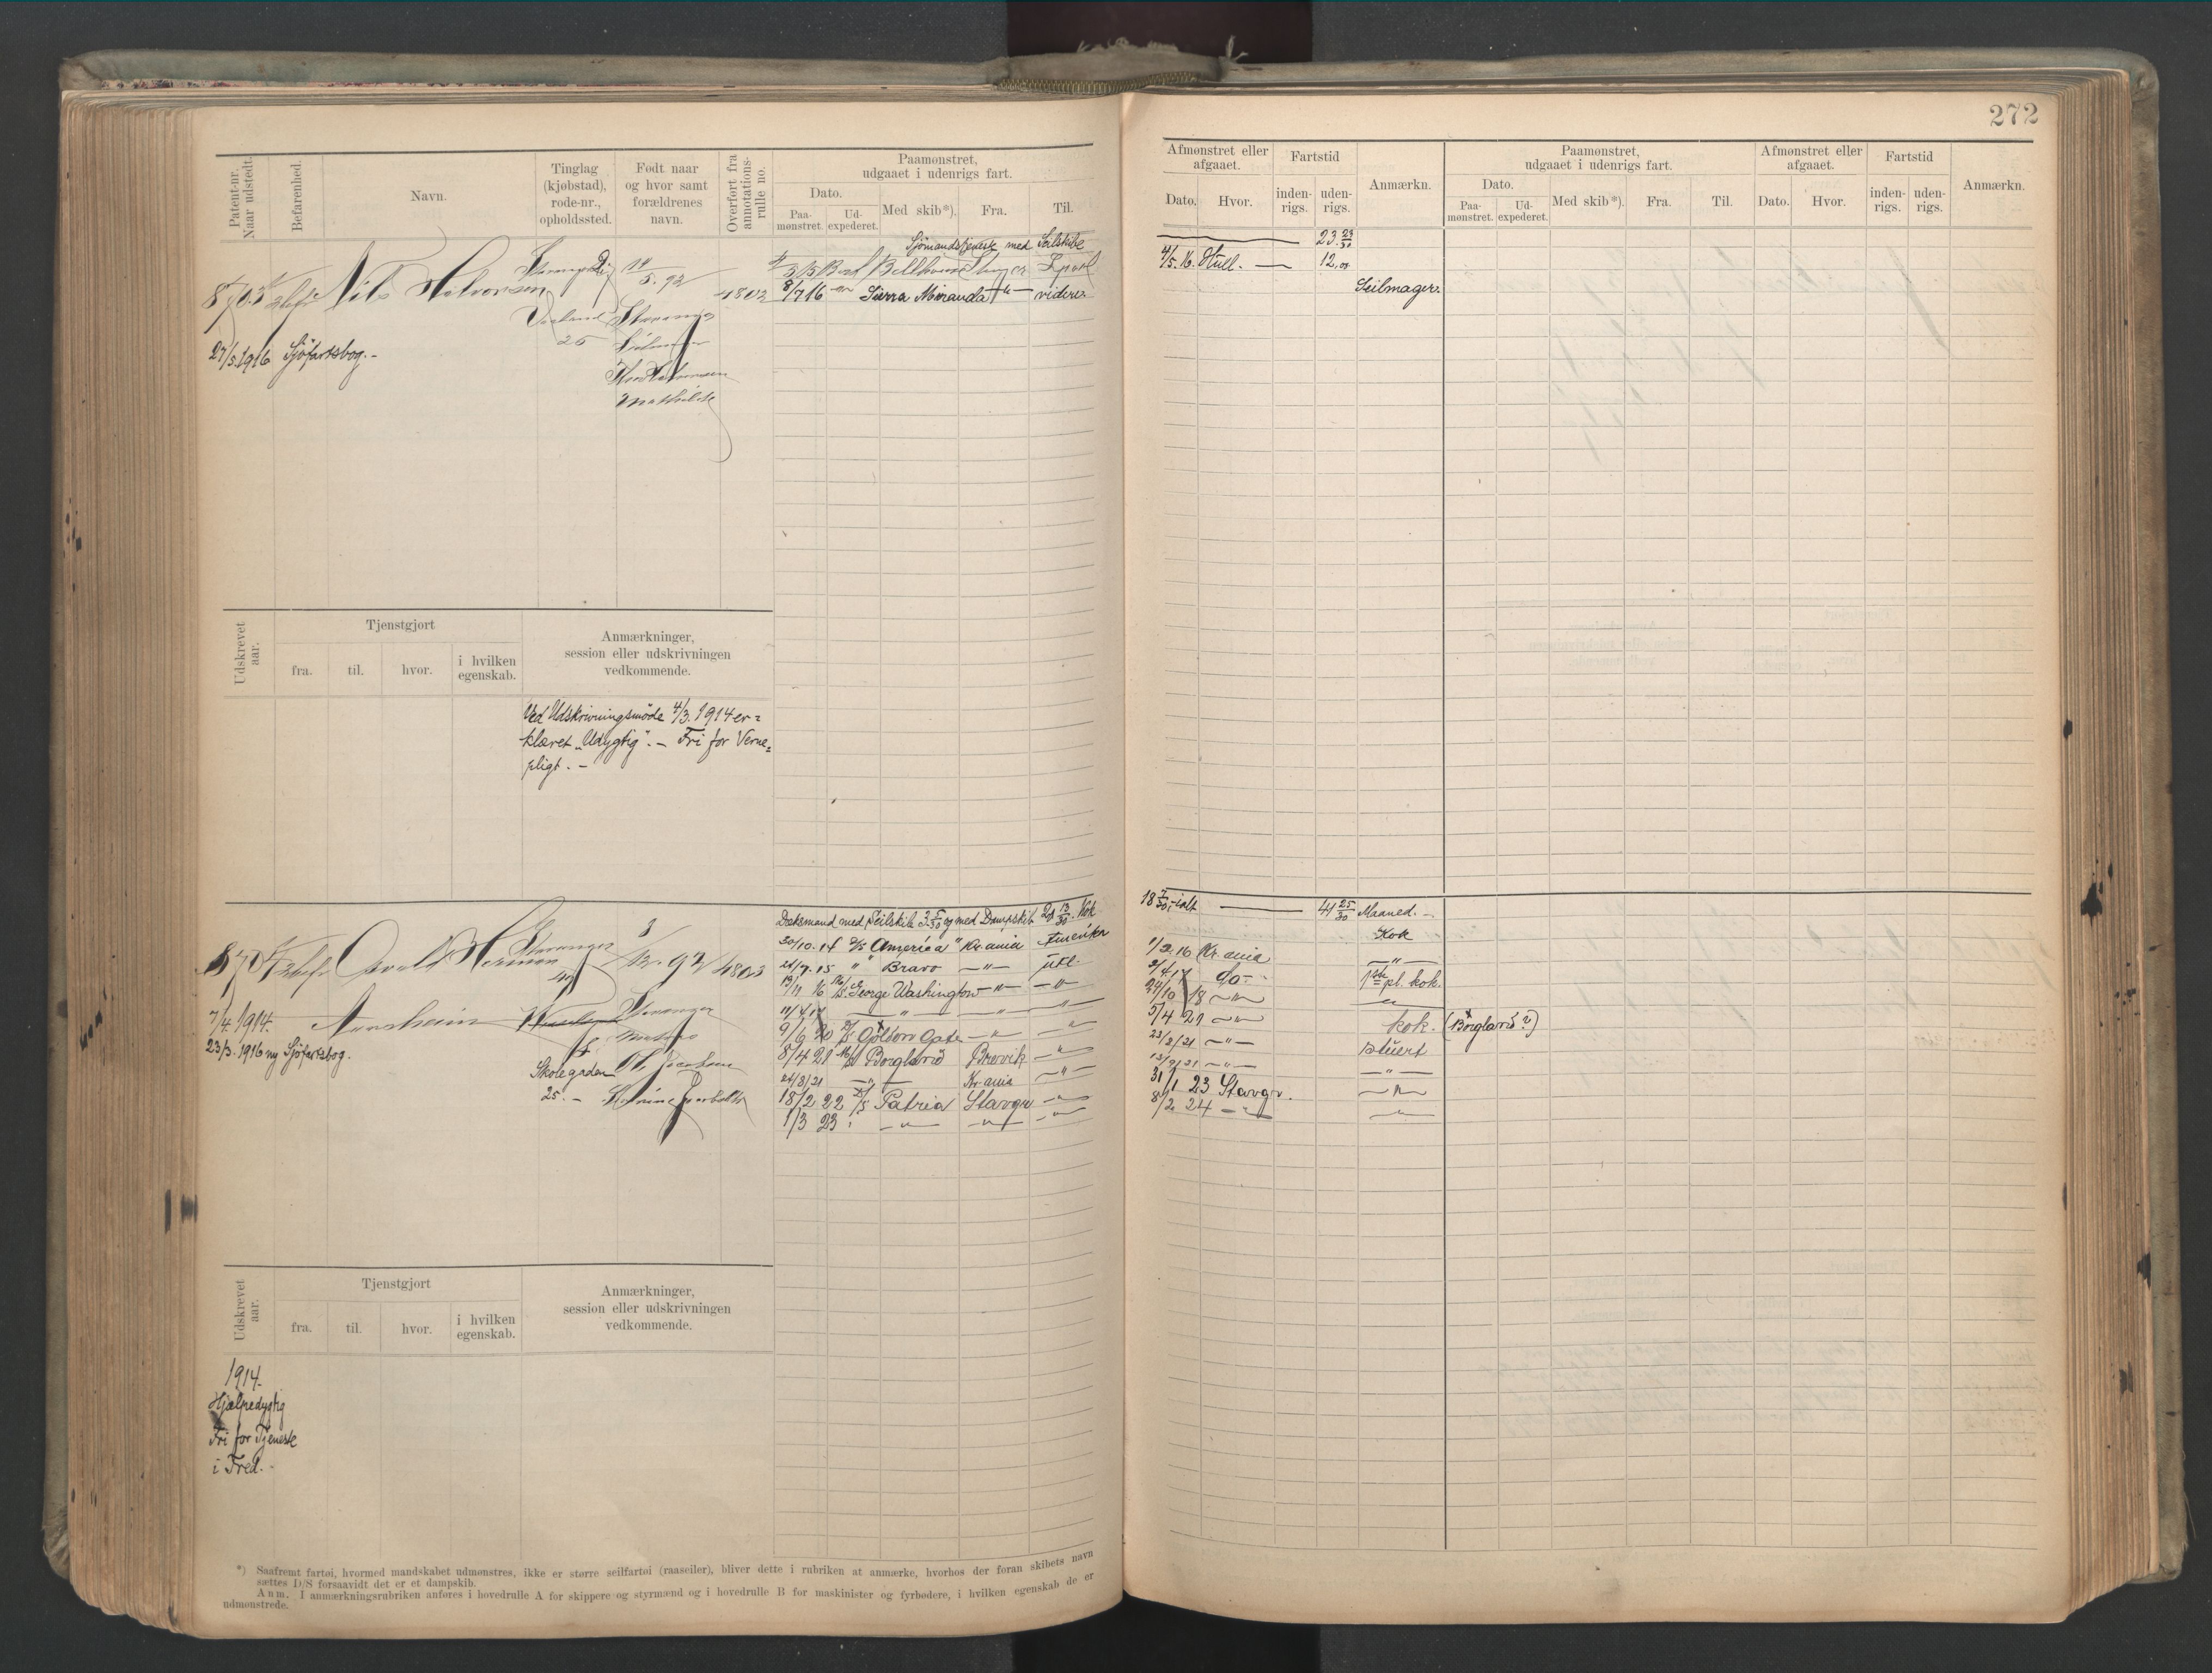 272
Patent-nr. Naar udstedt.
Befarenhed.
Navn.
Tinglag (kjøbstad), rode-nr., opholdssted.
Født naar og hvor samt forældrenes navn.
Overført fra annotations-rulle no.
Paamønstret, udgaaet i udenrigs fart.
Dato.
Paa-mønstret.
Ud-expederet.
Med skib*).
Fra.
Til.
Afmønstret eller afgaaet.
Dato.
Hvor.
Fartstid
inden-rigs.
uden-rigs.
Anmærkn.
Paamønstret, udgaaet i udenrigs fart.
Dato.
Paa-mønstret.
Ud-expederet.
Med skib*).
Fra.
Til.
Afmønstret eller afgaaet.
Dato.
Hvor.
Fartstid
inden-rigs.
uden-rigs.
Anmærkn.
Sjømandstjeneste med Seilskibe 23 23/30
8703 Nils Halvorsen
14/5. 92
4802
4/5. 16. Hull. — 12,00
8/7 16 Sierra Miranda — " — videre
Seilmager.
27/5 1916 Sjøfartsbog. -
25
Mathilde
Udskrevet aar.
Tjenstgjort
fra.
til.
hvor.
i hvilken egenskab.
Anmærkninger, session eller udskrivningen vedkommende.
Ved Udskrivningsmøde 4/3. 1914 er-
klæret „Udygtig". - Fri for Verne=
pligt. -
Dæksmand med Seilskib 3 5/30 og med Dampskib 20 13/30. Kok
18 7/30, ialt — 41 25/30 Maaned. -
8704 Osvald Herman
Aarsheim
Stavanger
3/12. 92
4803
30/10. 14 D/S America " Kr.ania Amerika
1/2. 16 Kr.ania
Kok
21/7. 15 " " Bravo — " — utl.
2/4 17 do -
— " —
19/11 16 M/S. George Washington — " — — " —
24/10 18 — " —
1ste pl. kok.
5/4 21 — " —
kok. (Borgland?)
8/4 21 Borgland Brevik — " —
23/8/21 — " —
stuert
24/8/21 — " — Kr.ania — " —
— " —
18/2 22 D/S Patria Stavgr — " —
31/1 23 Stavgr.
— " —
1/3 23 " — " — — " — — " —
8/2 24 — " —
— " —
7/4. 1914.
23/3. 1916 ny Sjøfartsbog.
Skolegaden
25. -
Stavanger
Udskrevet aar.
Tjenstgjort
fra.
til.
hvor.
i hvilken egenskab.
Anmærkninger, session eller udskrivningen vedkommende.
1914.
Hjælpedygtig
Fri for Tjeneste
i Fred. -
*) Saafremt fartøi, hvormed mandskabet udmønstres, ikke er større seilfartøi (raaseiler), bliver dette i rubriken at anmærke, hvorhos der foran skibets navn
sættes D/S forsaavidt det er et dampskib.
Anm. I anmærkningsrubriken anføres i hovedrulle A for skippere og styrmænd og i hovedrulle B for maskinister og fyrbødere, i hvilken egenskab de er
udmønstrede.